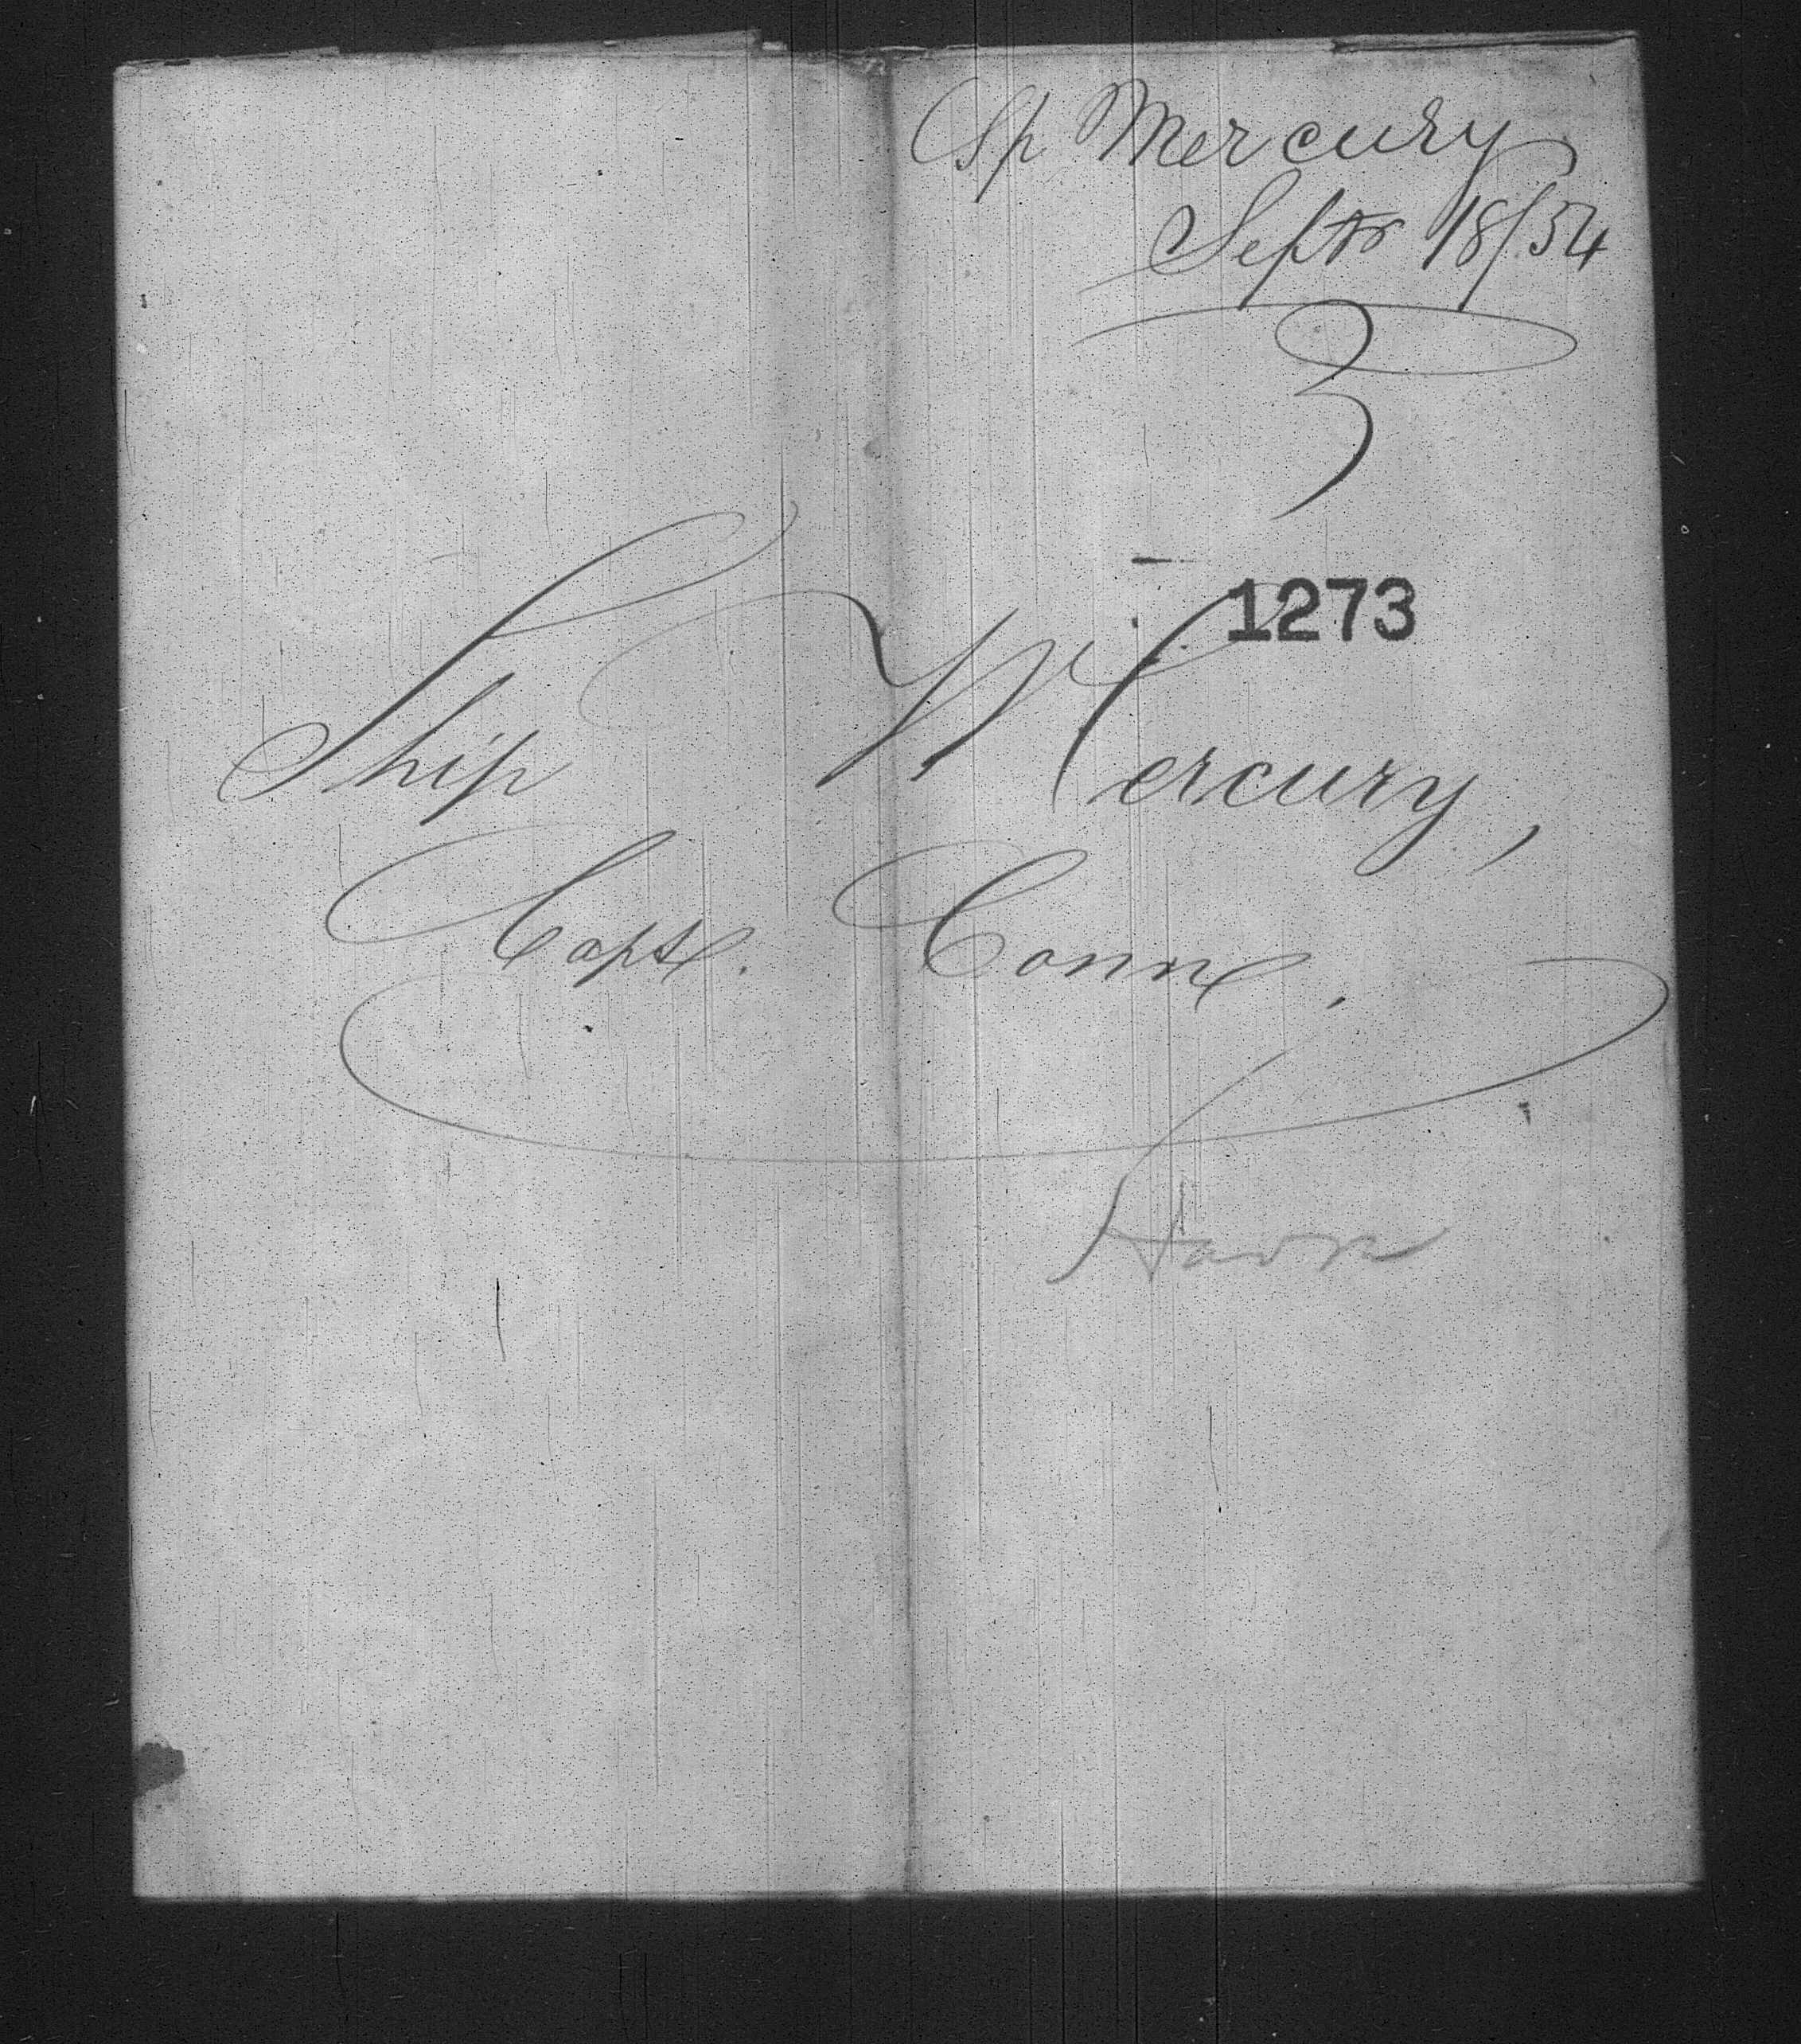 Sp Mercury
Septr 18/54
3
1273
Ship Mercury,
Capt. Conn.
Havre